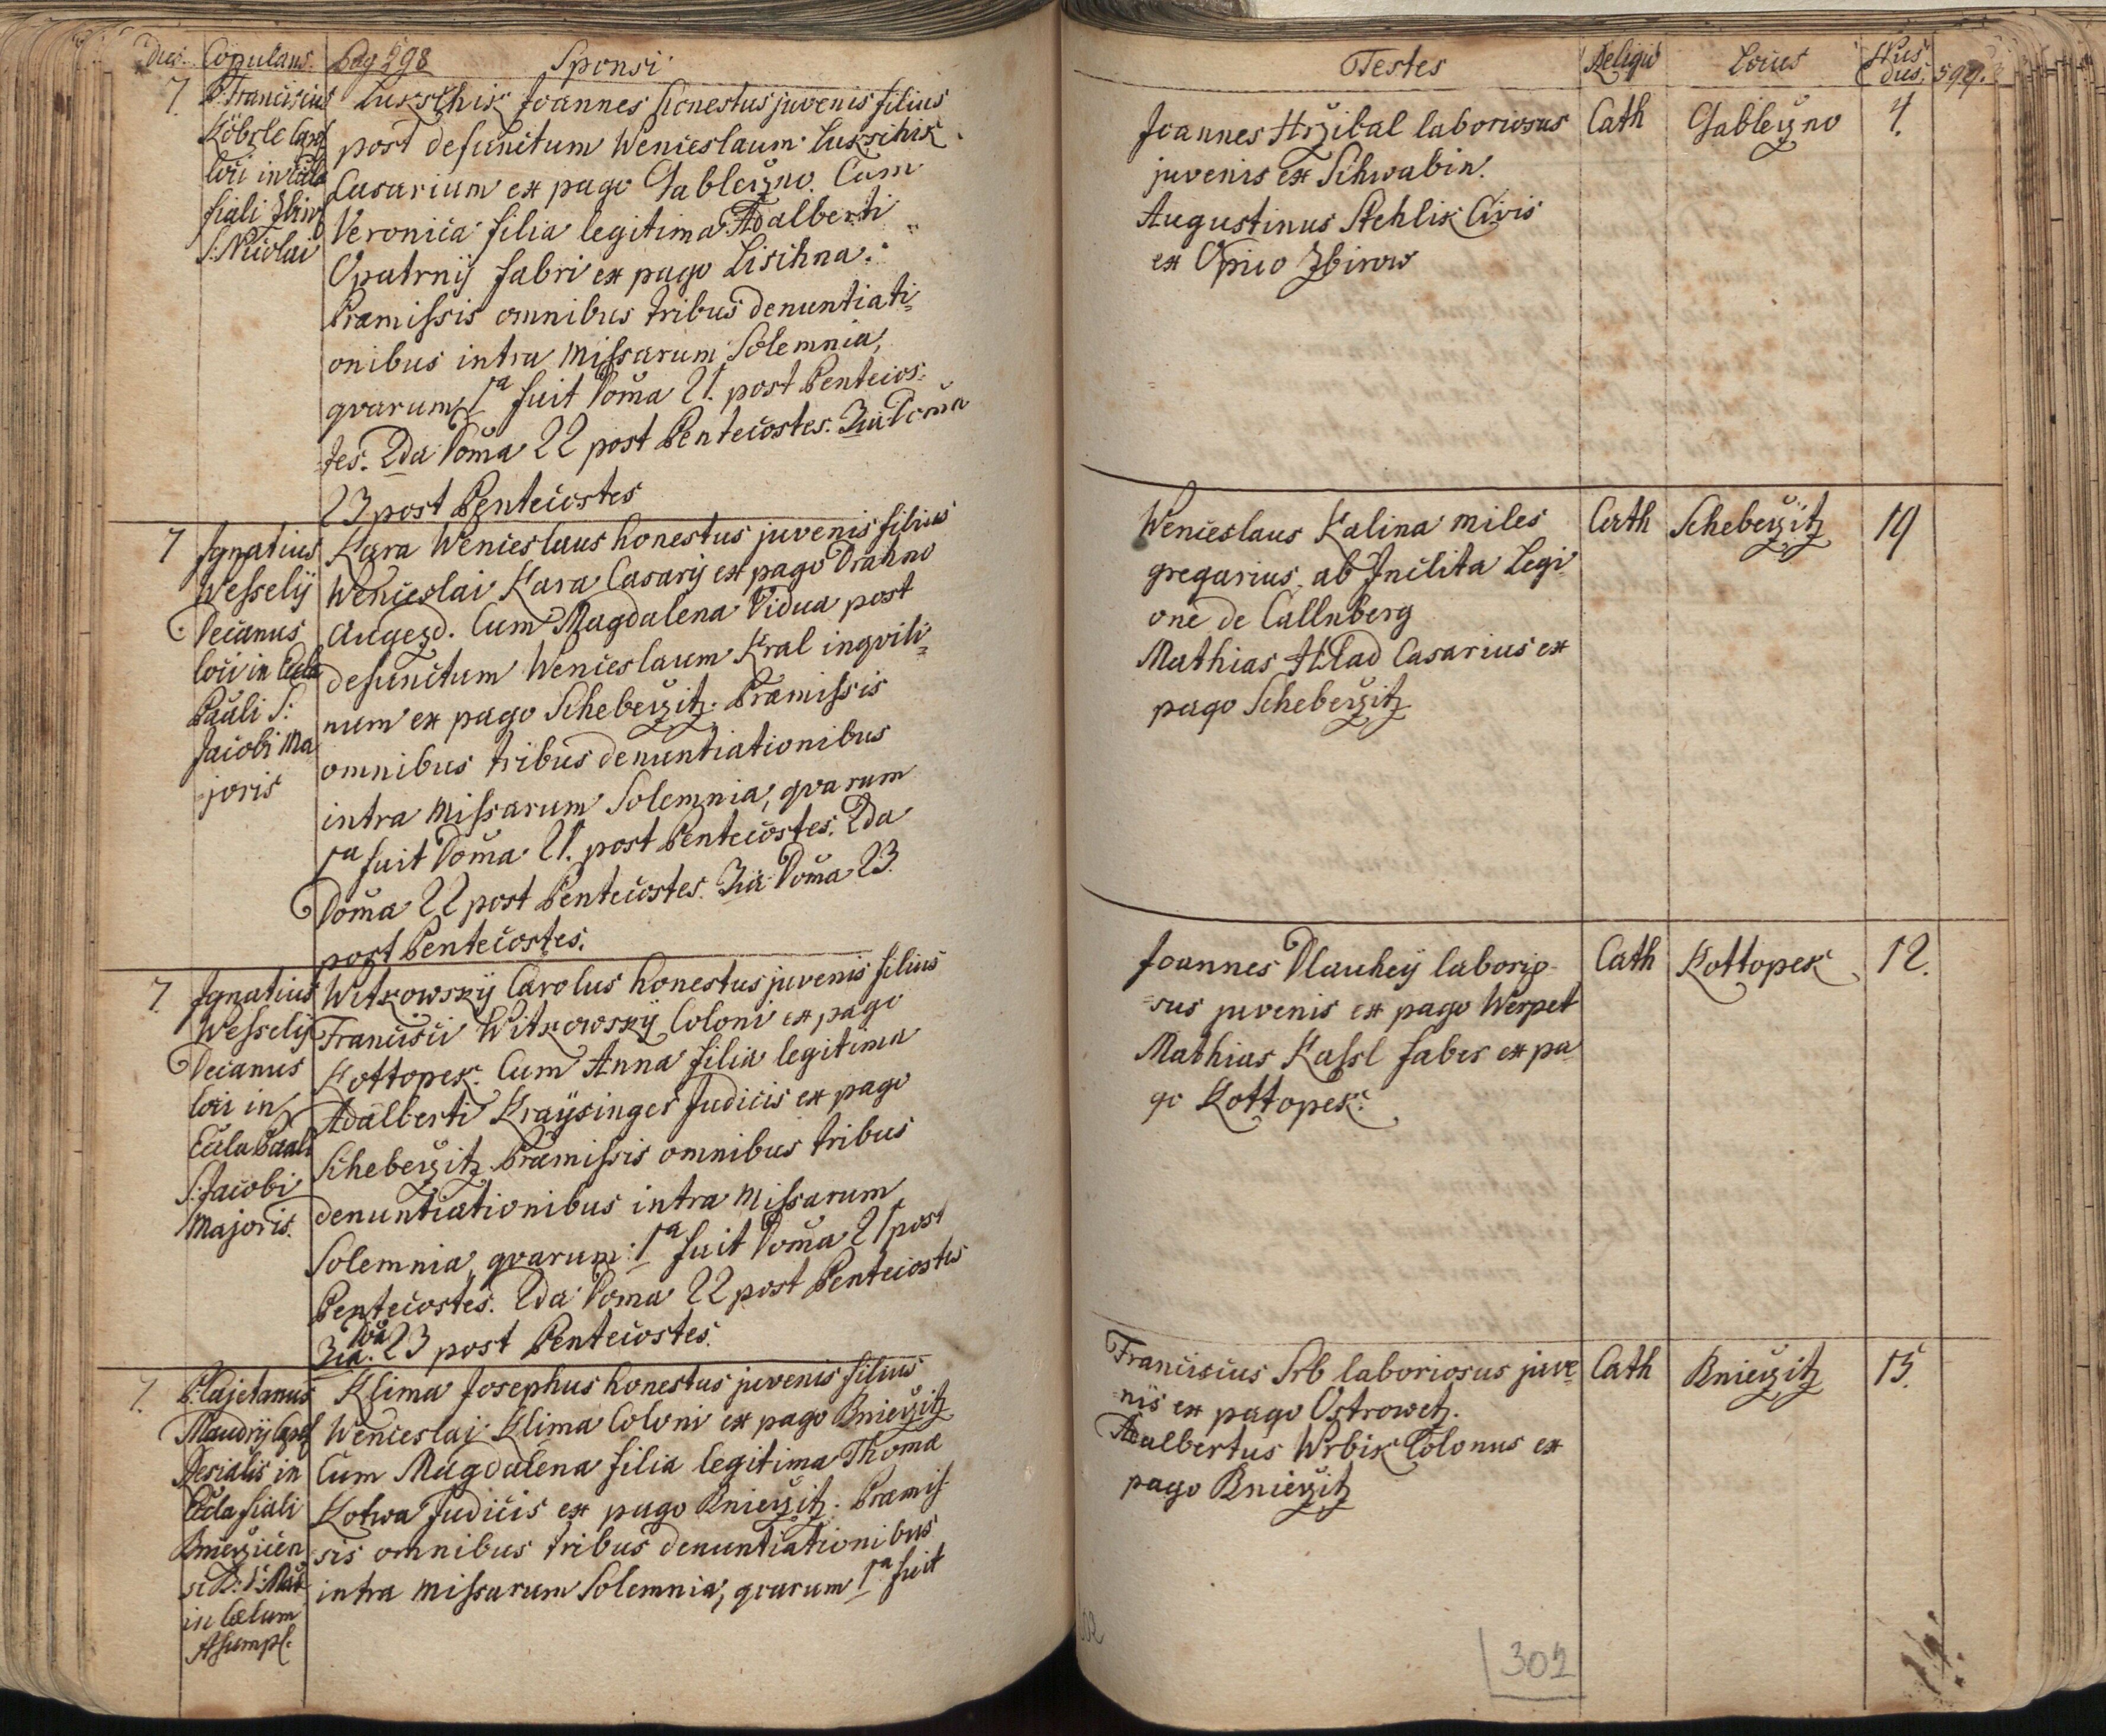 Dies. Copulans. Pag 298 Sponsi
7. P. Franciscus
Köbrle Capl
loci in Eccla
fiali Zbirov
S: Nicolai
Lukschik Joannes honestus juvenis filius
post defunctum Wenceslaum Lukschik
Casarium ex pago Jableczno. Cum
Veronica filia legitima Adalberti
Opatrnÿ fabri ex pago Lischna.
Præmissis omnibus tribus denuntiati=
onibus intra Missarum Solemnia,
qvarum 1a fuit Doma 21. post Pentecos=
tes. 2da Doma 22 post Pentecostes. 3ia Doma
23 post Pentecostes
7 Ignatius
Wesselÿ
Decanus
loci in Eccla
Pauli S:
Jacobi Ma
=joris
Kara Wenceslaus honestus juvenis filius
Wenceslai Kara Casarÿ ex pago Drahno
Augezd. Cum Magdalena Vidua post
defunctum Wenceslaum Kral inqvili=
num ex pago Scheberzitz. Præmissis
omnibus tribus denuntiationibus
intra Missarum Solemnia, qvarum
1a fuit Doma 21. post Pentecostes. 2da
Doma 22 post Pentecostes. 3ia Doma 23.
post Pentecostes.
7. Ignatius
Wesselÿ
Decanus
loci in
Eccla Paali
S: Jacobi
Majoris.
Witkowskÿ Carolus honestus juvenis filius
Francisci Witkowskÿ Coloni ex pago
Kottopek. Cum Anna filia legitima
Adalberti Kraÿsinger Judicis ex pago
Scheberzitz. Præmissis omnibus tribus
denuntiationibus intra Missarum
Solemnia, qvarum: 1a fuit Doma 21 post
Pentecostes. 2da Doma 22 post Pentecostes
3ia. Doa 23 post Pentecostes.
7. P: Cajetanus
Maudrÿ Capl
in
Eccla fiali
in Cælum
Assumpt.
Klima Josephus honestus juvenis filius
Wenceslai Klima Coloni ex pago Bnierzitz
Cum Magdalena filia legitima Thomæ
Kotwa Judicis ex pago Bnierzitz. Præmis=
sis omnibus tribus denuntiationibus
intra Missarum Solemnia, qvarum 1a fuit
Testes Religio Locus Nus dus. 599.
Joannes Hrzibal laboriosus Cath Jableczno 4.
juvenis ex Schwabin.
Augustinus Stehlik Civis
ex Opido Zbirow
Wenceslaus Kalina miles Cath Scheberzitz 19
gregarius ab Inclita Legi=
one de Callnberg
Mathias Hlad Casarius ex
pago Scheberzitz.
Joannes Dlauhÿ laborio= Cath Kottopek 12.
=sus juvenis ex pago Werpet
Mathias Kassl faber ex pa
go Kottopek.
Franciscus Srb laboriosus juve= Cath Bnierzitz 15.
=nis ex pago Ostrowetz.
Adalbertus Wrbik Colonus ex
pago Bnierzitz
302